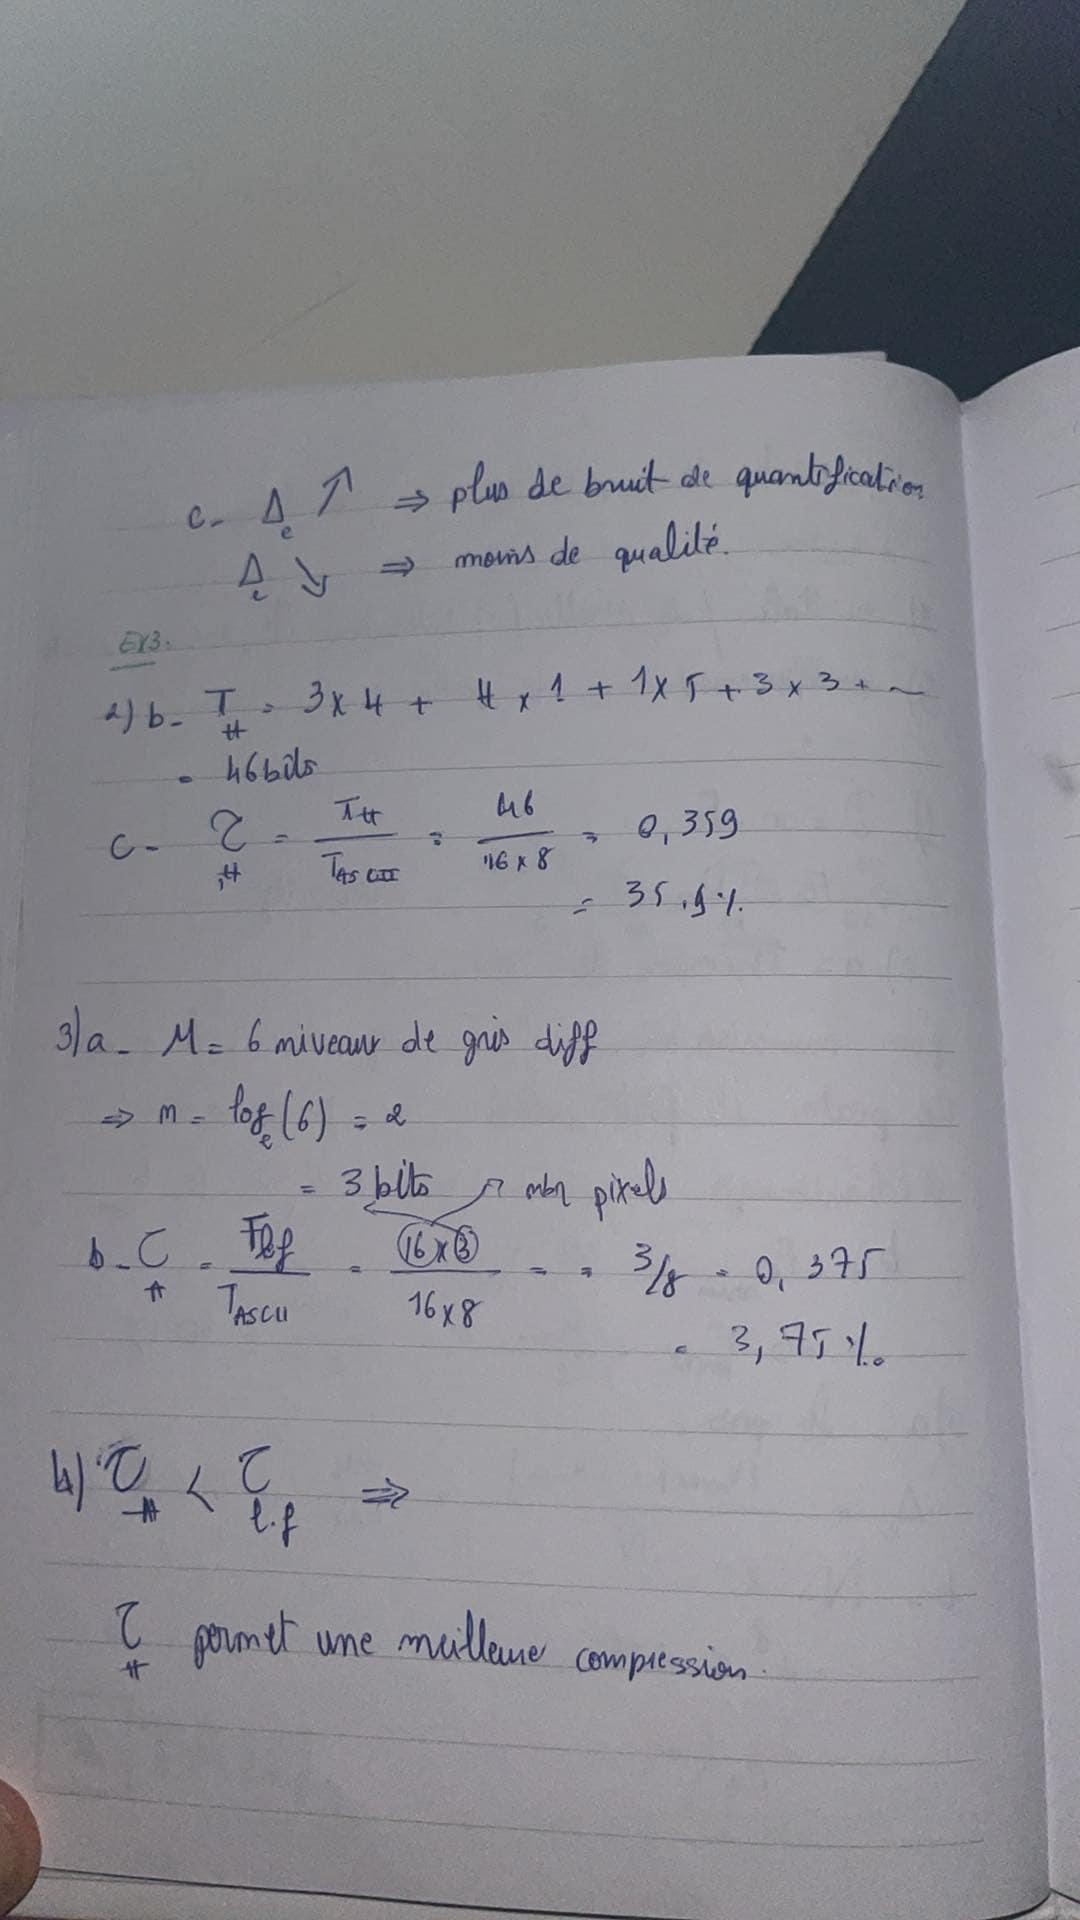 c- Δe ↗ ⇒ plus de bruit de quantification
Δe ↘ ⇒ moins de qualité.
EX3.
2) b- T_H = 3x4 + 4x1 + 1x5 + 3x3 + ~
= 46 bits
c- τ_H = T_H / T_ASCII = 46 / 16x8 = 0,359
= 35,9%
3) a- M = 6 niveaux de gris diff
⇒ m = log_e(6) = 2
= 3 bits → nbr pixels
b- τ_H = T_lf / T_ASCII = 16x3 / 16x8 = = 3/8 = 0,375
= 3,75%
4) τ_H < τ_l.f ⇒
τ_H permet une meilleure compression.